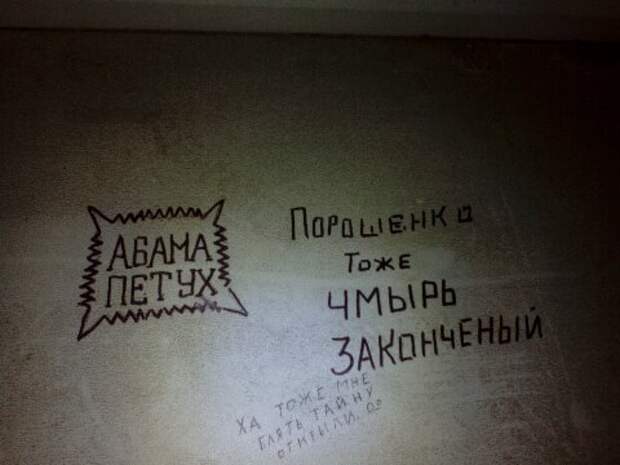 АБАМА
ПЕТУХ
ПОРОШЕНКО
ТОЖЕ
ЧМЫРЬ
ЗАКОНЧЕНЫЙ
ХА ТОЖЕ МНЕ
БЛЯТЬ ТАЙНУ
ОТКРЫЛИ.